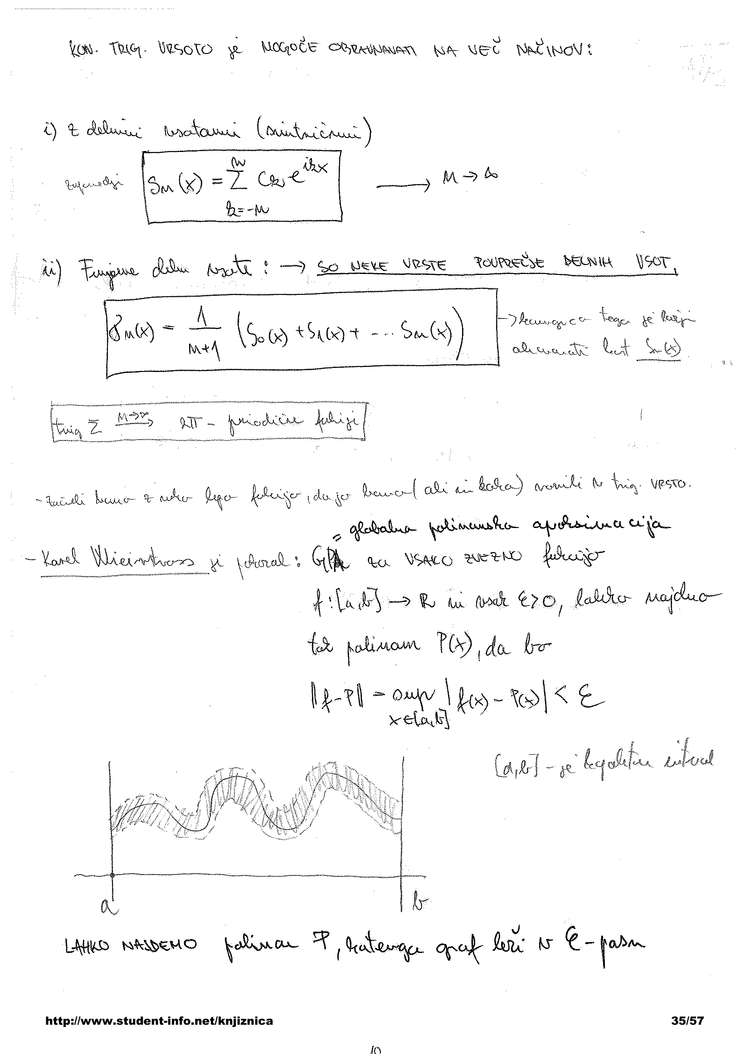 KON. TRIG. VRSOTO je MOGOČE OBRAVNAVATI NA VEČ NAČINOV:
i) z delnimi vsotami (simetričnimi)
Sn(x) = Σ_{k=-n}^{n} c_k e^{ikx} → n→∞
ii) delne vsote: → SO NEKE VRSTE POUPREČJE DELNIH VSOT,
σn(x) = 1/(n+1) (S0(x) + S1(x) + ... Sn(x))
tega je
kot Sn(x)
trig Σ n→∞ 2π - periodični funkciji
- Začeli bomo z neko lepo funkcijo, da jo bomo (ali ne bomo) razvili v trig. VRSTO.
= globalna polinomska aproksimacija
- Karel Weierstrass je pokazal: GPA za VSAKO ZVEZNO funkcijo
f: [a,b] → R in vsak ε>0, lahko najdemo
tak polinom P(x), da bo
||f-P|| = sup_{x∈[a,b]} |f(x) - P(x)| < ε
[a,b] - je kompakten interval
a b
LAHKO NAJDEMO polinom P, katerega graf leži v ε-pasu
http://www.student-info.net/knjiznica 35/57